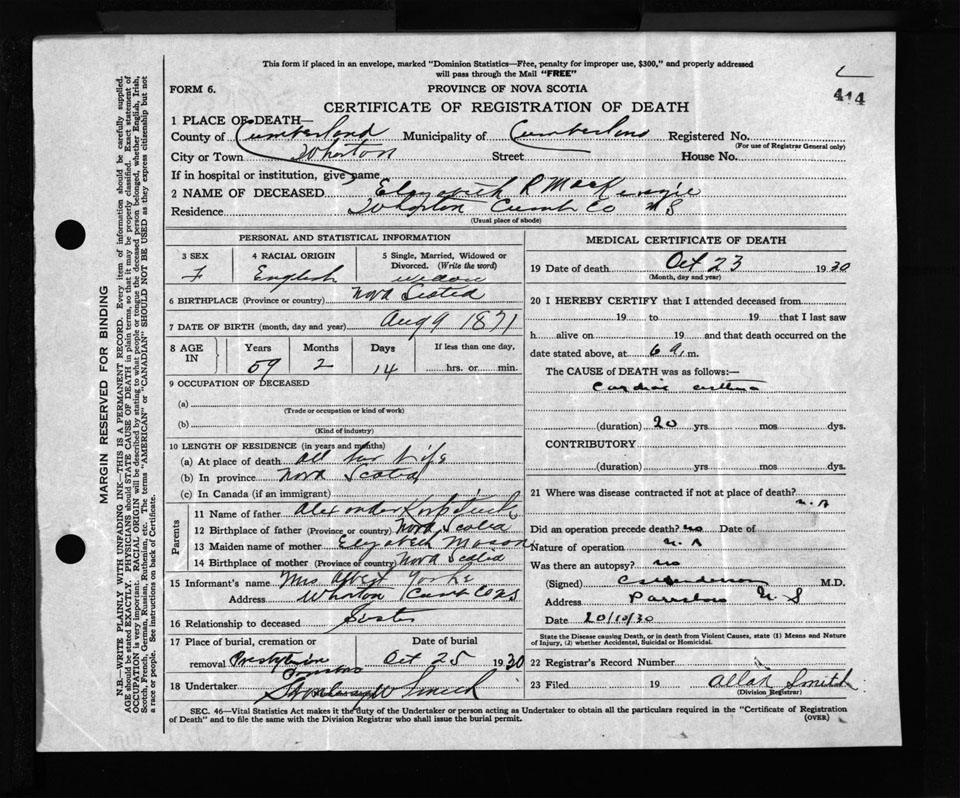 This form if placed in an envelope, marked "Dominion Statistics—Free, penalty for improper use, $300," and properly addressed
will pass through the Mail "FREE"
FORM 6.
PROVINCE OF NOVA SCOTIA
414
CERTIFICATE OF REGISTRATION OF DEATH
1 PLACE OF DEATH—
County of Cumberland Municipality of Cumberland Registered No.
(For use of Registrar General only)
City or Town Wharton Street House No.
If in hospital or institution, give name
2 NAME OF DECEASED Elizabeth R MacKenzie
Residence Wharton Cumb Co N S
(Usual place of abode)
PERSONAL AND STATISTICAL INFORMATION
3 SEX 4 RACIAL ORIGIN 5 Single, Married, Widowed or Divorced. (Write the word)
F English widow
6 BIRTHPLACE (Province or country) Nova Scotia
7 DATE OF BIRTH (month, day and year) Aug 9 1871
8 AGE IN Years Months Days If less than one day,
59 2 14 hrs. or min.
9 OCCUPATION OF DECEASED
(a)
(Trade or occupation or kind of work)
(b)
(Kind of industry)
10 LENGTH OF RESIDENCE (in years and months)
(a) At place of death all her Life
(b) In province Nova Scotia
(c) In Canada (if an immigrant)
Parents
11 Name of father Alexander
12 Birthplace of father (Province or country) Nova Scotia
13 Maiden name of mother Elizabeth Mason
14 Birthplace of mother (Province or country) Nova Scotia
15 Informant's name Mrs Albert Yorke
Address Wharton Cumb Co NS
16 Relationship to deceased Sister
17 Place of burial, cremation or Date of burial
removal Presbyterian Oct 25 1930
18 Undertaker Smith
MEDICAL CERTIFICATE OF DEATH
19 Date of death Oct 23 1930
(Month, day and year)
20 I HEREBY CERTIFY that I attended deceased from
19 to 19 that I last saw
h alive on 19 and that death occurred on
date stated above, at 6 a. m.
The CAUSE of DEATH was as follows:—
Cardiac asthma
(duration) 20 yrs. mos dys.
CONTRIBUTORY
(duration) yrs. mos. dys.
21 Where was disease contracted if not at place of death?
N. A
Did an operation precede death? no Date of
Nature of operation N. A
Was there an autopsy? no
(Signed) M.D.
Address Parrsboro N S
Date 20/10/30
State the Disease causing Death, or in death from Violent Causes, state (1) Means and Nature
of Injury, (2) whether Accidental, Suicidal or Homicidal.
22 Registrar's Record Number
23 Filed 19 Allan Smith
(Division Registrar)
SEC. 46—Vital Statistics Act makes it the duty of the Undertaker or person acting as Undertaker to obtain all the particulars required in the "Certificate of Registration
of Death" and to file the same with the Division Registrar who shall issue the burial permit.
(OVER)
MARGIN RESERVED FOR BINDING
N.B.—WRITE PLAINLY WITH UNFADING INK—THIS IS A PERMANENT RECORD. Every item of information should be carefully supplied.
AGE should be stated EXACTLY. PHYSICIANS should STATE CAUSE OF DEATH in plain terms, so that it may be properly classified. Exact statement of
OCCUPATION is very important. RACIAL ORIGIN will be described by stating to what people or tongue the deceased person belonged, whether English, Irish,
Scotch, French, German, Russian, Ruthenian, etc. The terms "AMERICAN" or "CANADIAN" SHOULD NOT BE USED as they express citizenship but not
a race or people. See instructions on back of Certificate.